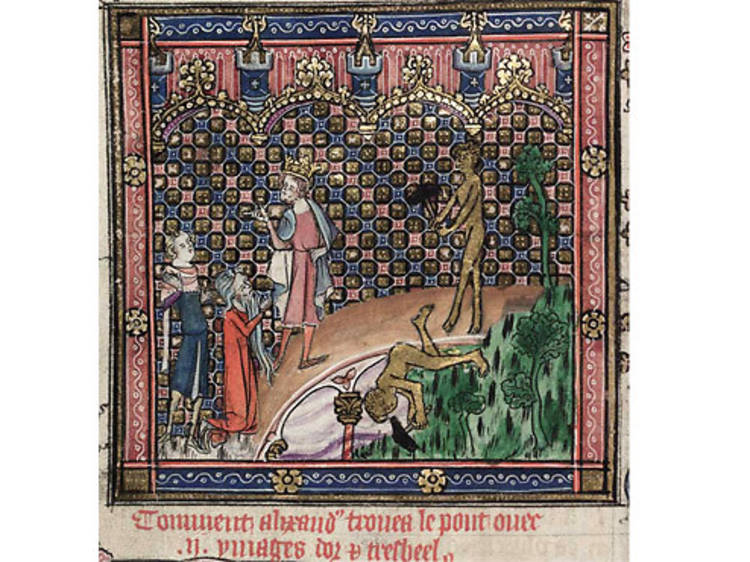 Comment alixand' trouea le pont ouec
.ij. ymages dor ⁊ tresbeel.